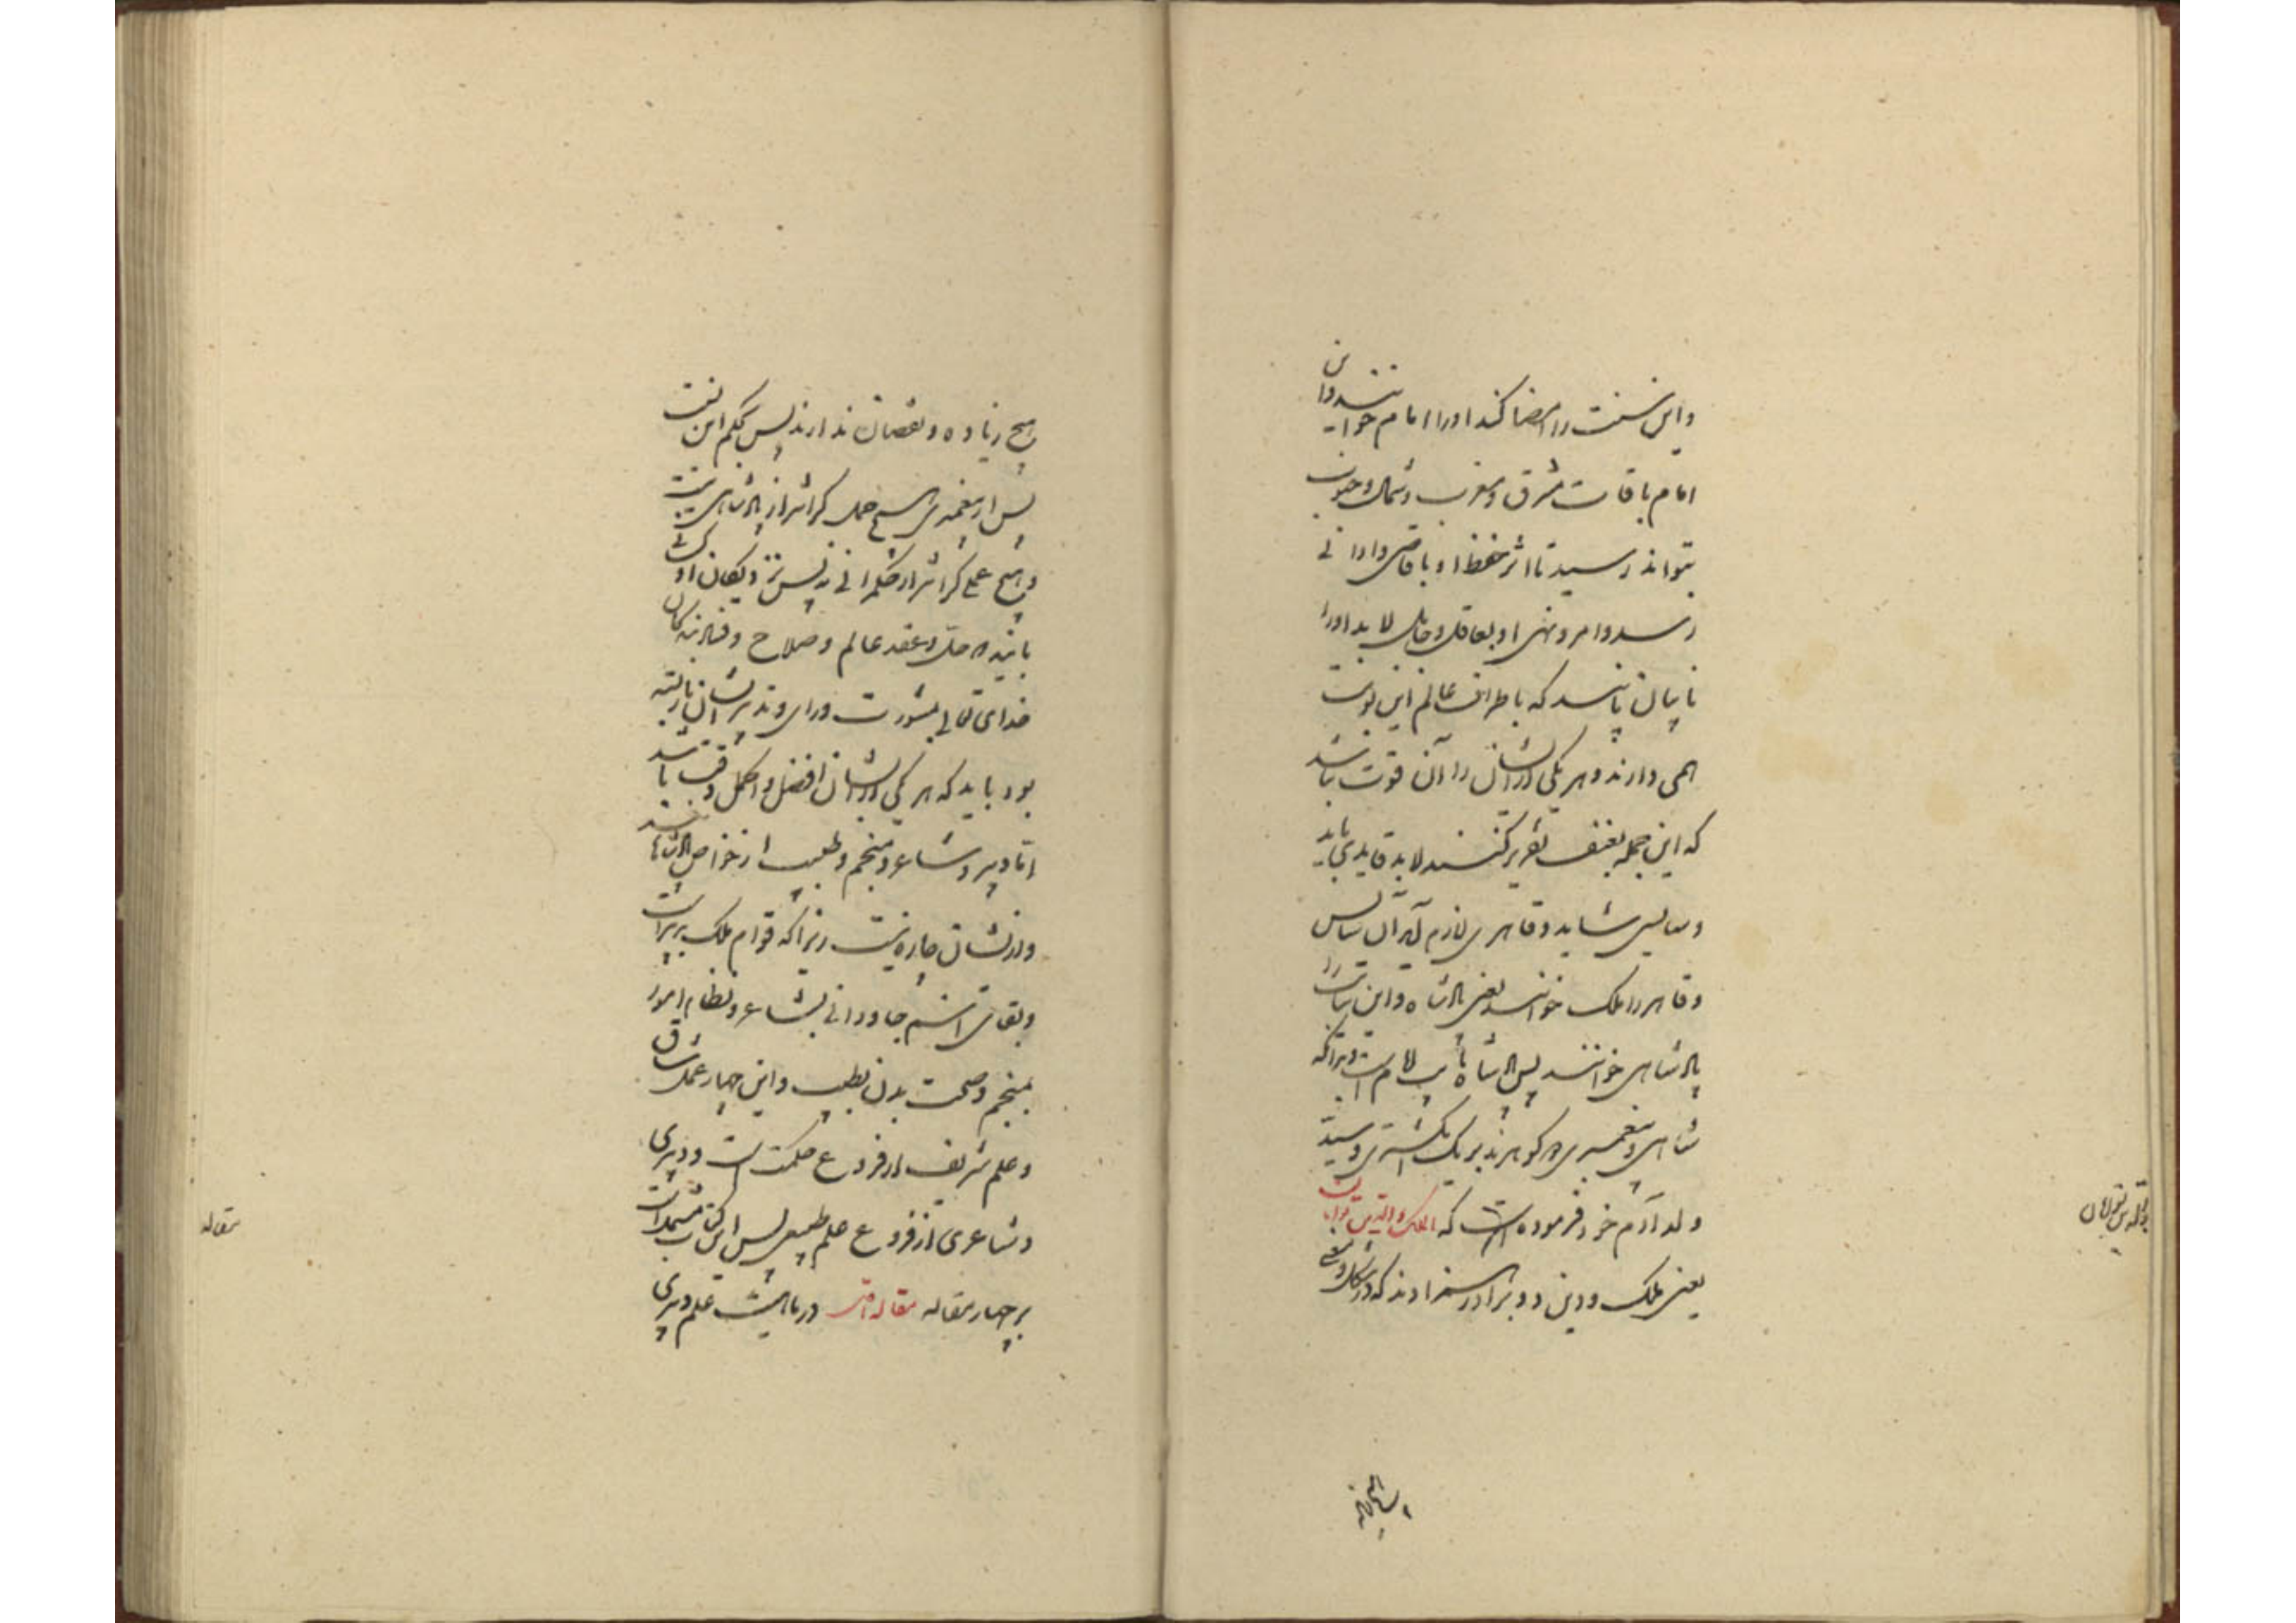 و این سنت را امضا کند او را امام خوانند و این
امام بآفاق مشرق و مغرب و شمال و جنوب
نتواند رسید تا اثر حفظ او بقاصی و دانی
رسد و امر و نهی او بعاقل و جاهل لابد او را
نایبان بایند که باطراف عالم این نوبت
همی دارند و هر یکی از ایشان را آن قوت نباشد
که این جمله بعنف تقریر کنند لابد قایدی باید
و سایسی شاید و قاهری لازم آید آن سایس
و قاهر را ملک خوانند یعنی پادشاه و این نیابت را
پادشاهی خوانند پس پادشاه نایب امام است زیراکه
شاهی و پیغمبری دو گوهرند بر یک انگشتری و سید
ولد آدم خود فرموده است که الملک و الدین توامان
یعنی ملک و دین دو برادر همزادند که در شکل و معنی
الدین توامان
هیچ زیاده و نقصان ندارند پس بحکم این نسبت
پس از پیغمبری هیچ حمل گرانتر از پادشاهی نیست
و هیچ عملی گرانتر از حکمرانی نه پس نزدیکان او کسانی
بایند که حل و عقد عالم و صلاح و فساد بندگان
خدای تعالی بمشورت و رای و تدبیر ایشان باز بسته
بود باید که هر یکی از ایشان افضل و اکمل وقت باشند
اما دبیر و شاعر و منجم و طبیب از خواص پادشاهند
و ازیشان چاره نیست زیراکه قوام ملک بدبیر است
و بقای اسم جاودانی بشاعر و نظام امور
بمنجم و صحت بدن بطبیب و این چهار عمل شاق
و علم شریف از فروع حکمت است و دبیری
و شاعری از فروع علم طبیعی پس این کتاب مشتمل است
بر چهار مقاله مقاله اول در ماهیت علم دبیری
مقاله